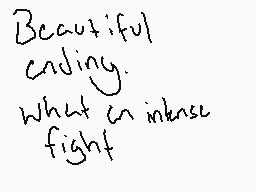 Beautiful
ending.
What an intense
fight